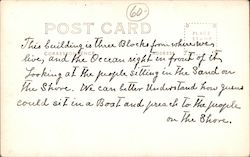 60-
POST CARD
This building is three Blocks from where we
live, and the Ocean right in front of it
Looking at the people sitting in the Sand on
the Shore. We can better Understand how Jesus
could sit in a Boat and preach to the people
on the Shore.